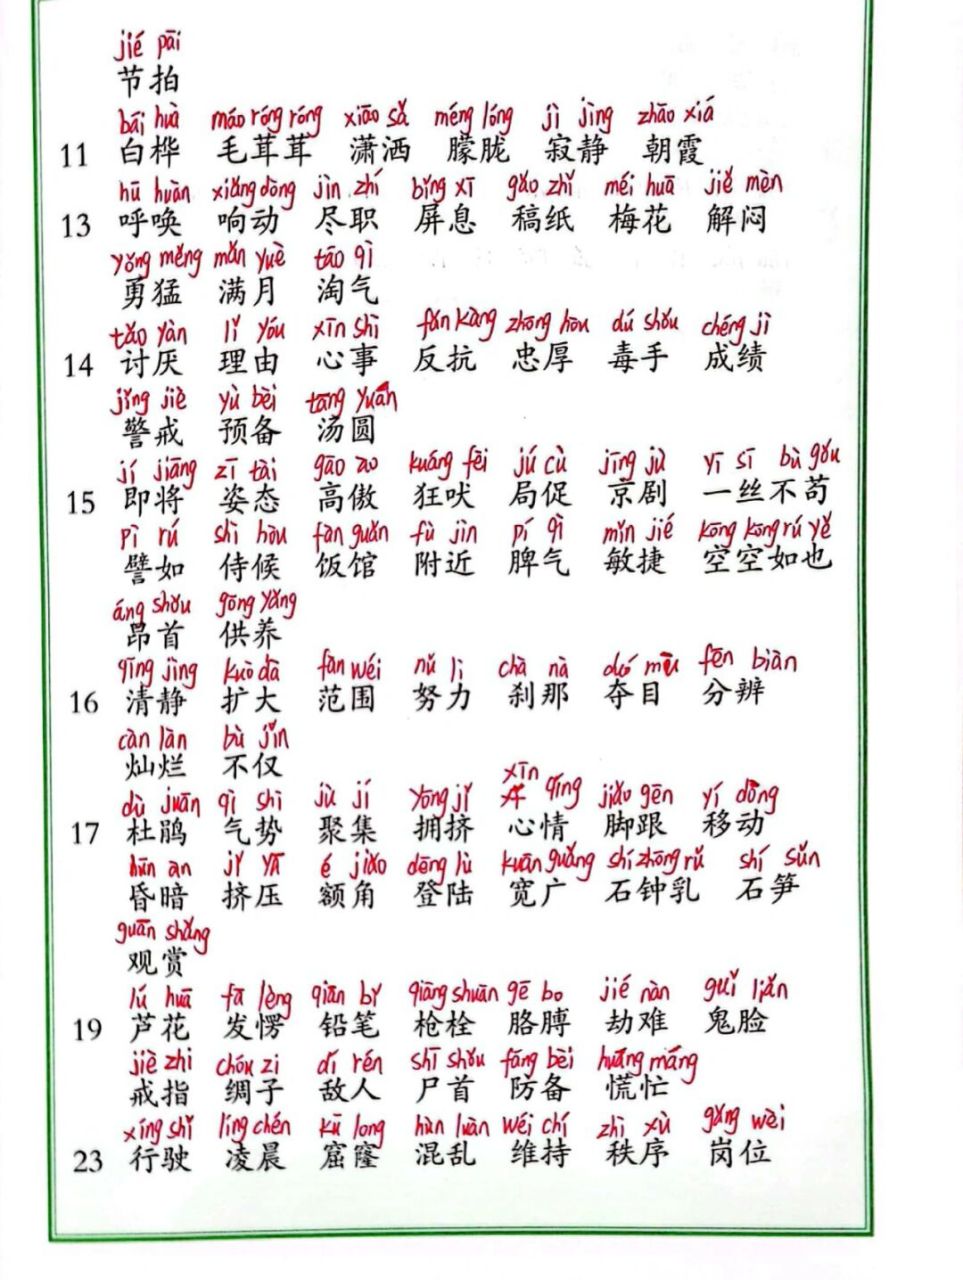 jié pāi
节拍
bái huà máo róng róng xiāo sǎ méng lóng jì jìng zhāo xiá
11 白桦 毛茸茸 潇洒 朦胧 寂静 朝霞
hū huàn xiǎng dòng jìn zhí bǐng xī gǎo zhǐ méi huā jiě mèn
13 呼唤 响动 尽职 屏息 稿纸 梅花 解闷
yǒng měng mǎn yuè táo qì
勇猛 满月 淘气
tǎo yàn lǐ yóu xīn shì fǎn kàng zhōng hòu dú shǒu chéng jì
14 讨厌 理由 心事 反抗 忠厚 毒手 成绩
jǐng jiè yù bèi tāng yuán
警戒 预备 汤圆
jí jiāng zī tài gāo ào kuáng fèi jú cù jīng jù yī sī bù gǒu
15 即将 姿态 高傲 狂吠 局促 京剧 一丝不苟
pì rú shì hòu fàn guǎn fù jìn pí qì mǐn jié kōng kōng rú yě
譬如 侍候 饭馆 附近 脾气 敏捷 空空如也
áng shǒu gōng yǎng
昂首 供养
qīng jìng kuò dà fàn wéi nǔ lì chà nà duó mù fēn biàn
16 清静 扩大 范围 努力 刹那 夺目 分辨
càn làn bù jǐn
灿烂 不仅
dù juān qì shì jù jí yōng jǐ xīn qíng jiǎo gēn yí dòng
17 杜鹃 气势 聚集 拥挤 心情 脚跟 移动
hūn àn jǐ yā é jiǎo dēng lù kuān guǎng shí zhōng rǔ shí sǔn
昏暗 挤压 额角 登陆 宽广 石钟乳 石笋
guān shǎng
观赏
lú huā fā lèng qiān bǐ qiāng shuān gē bo jié nàn guǐ liǎn
19 芦花 发愣 铅笔 枪栓 胳膊 劫难 鬼脸
jiè zhi chóu zi dí rén shī shǒu fáng bèi huāng máng
戒指 绸子 敌人 尸首 防备 慌忙
xíng shǐ líng chén kū long hùn luàn wéi chí zhì xù gǎng wèi
23 行驶 凌晨 窟窿 混乱 维持 秩序 岗位